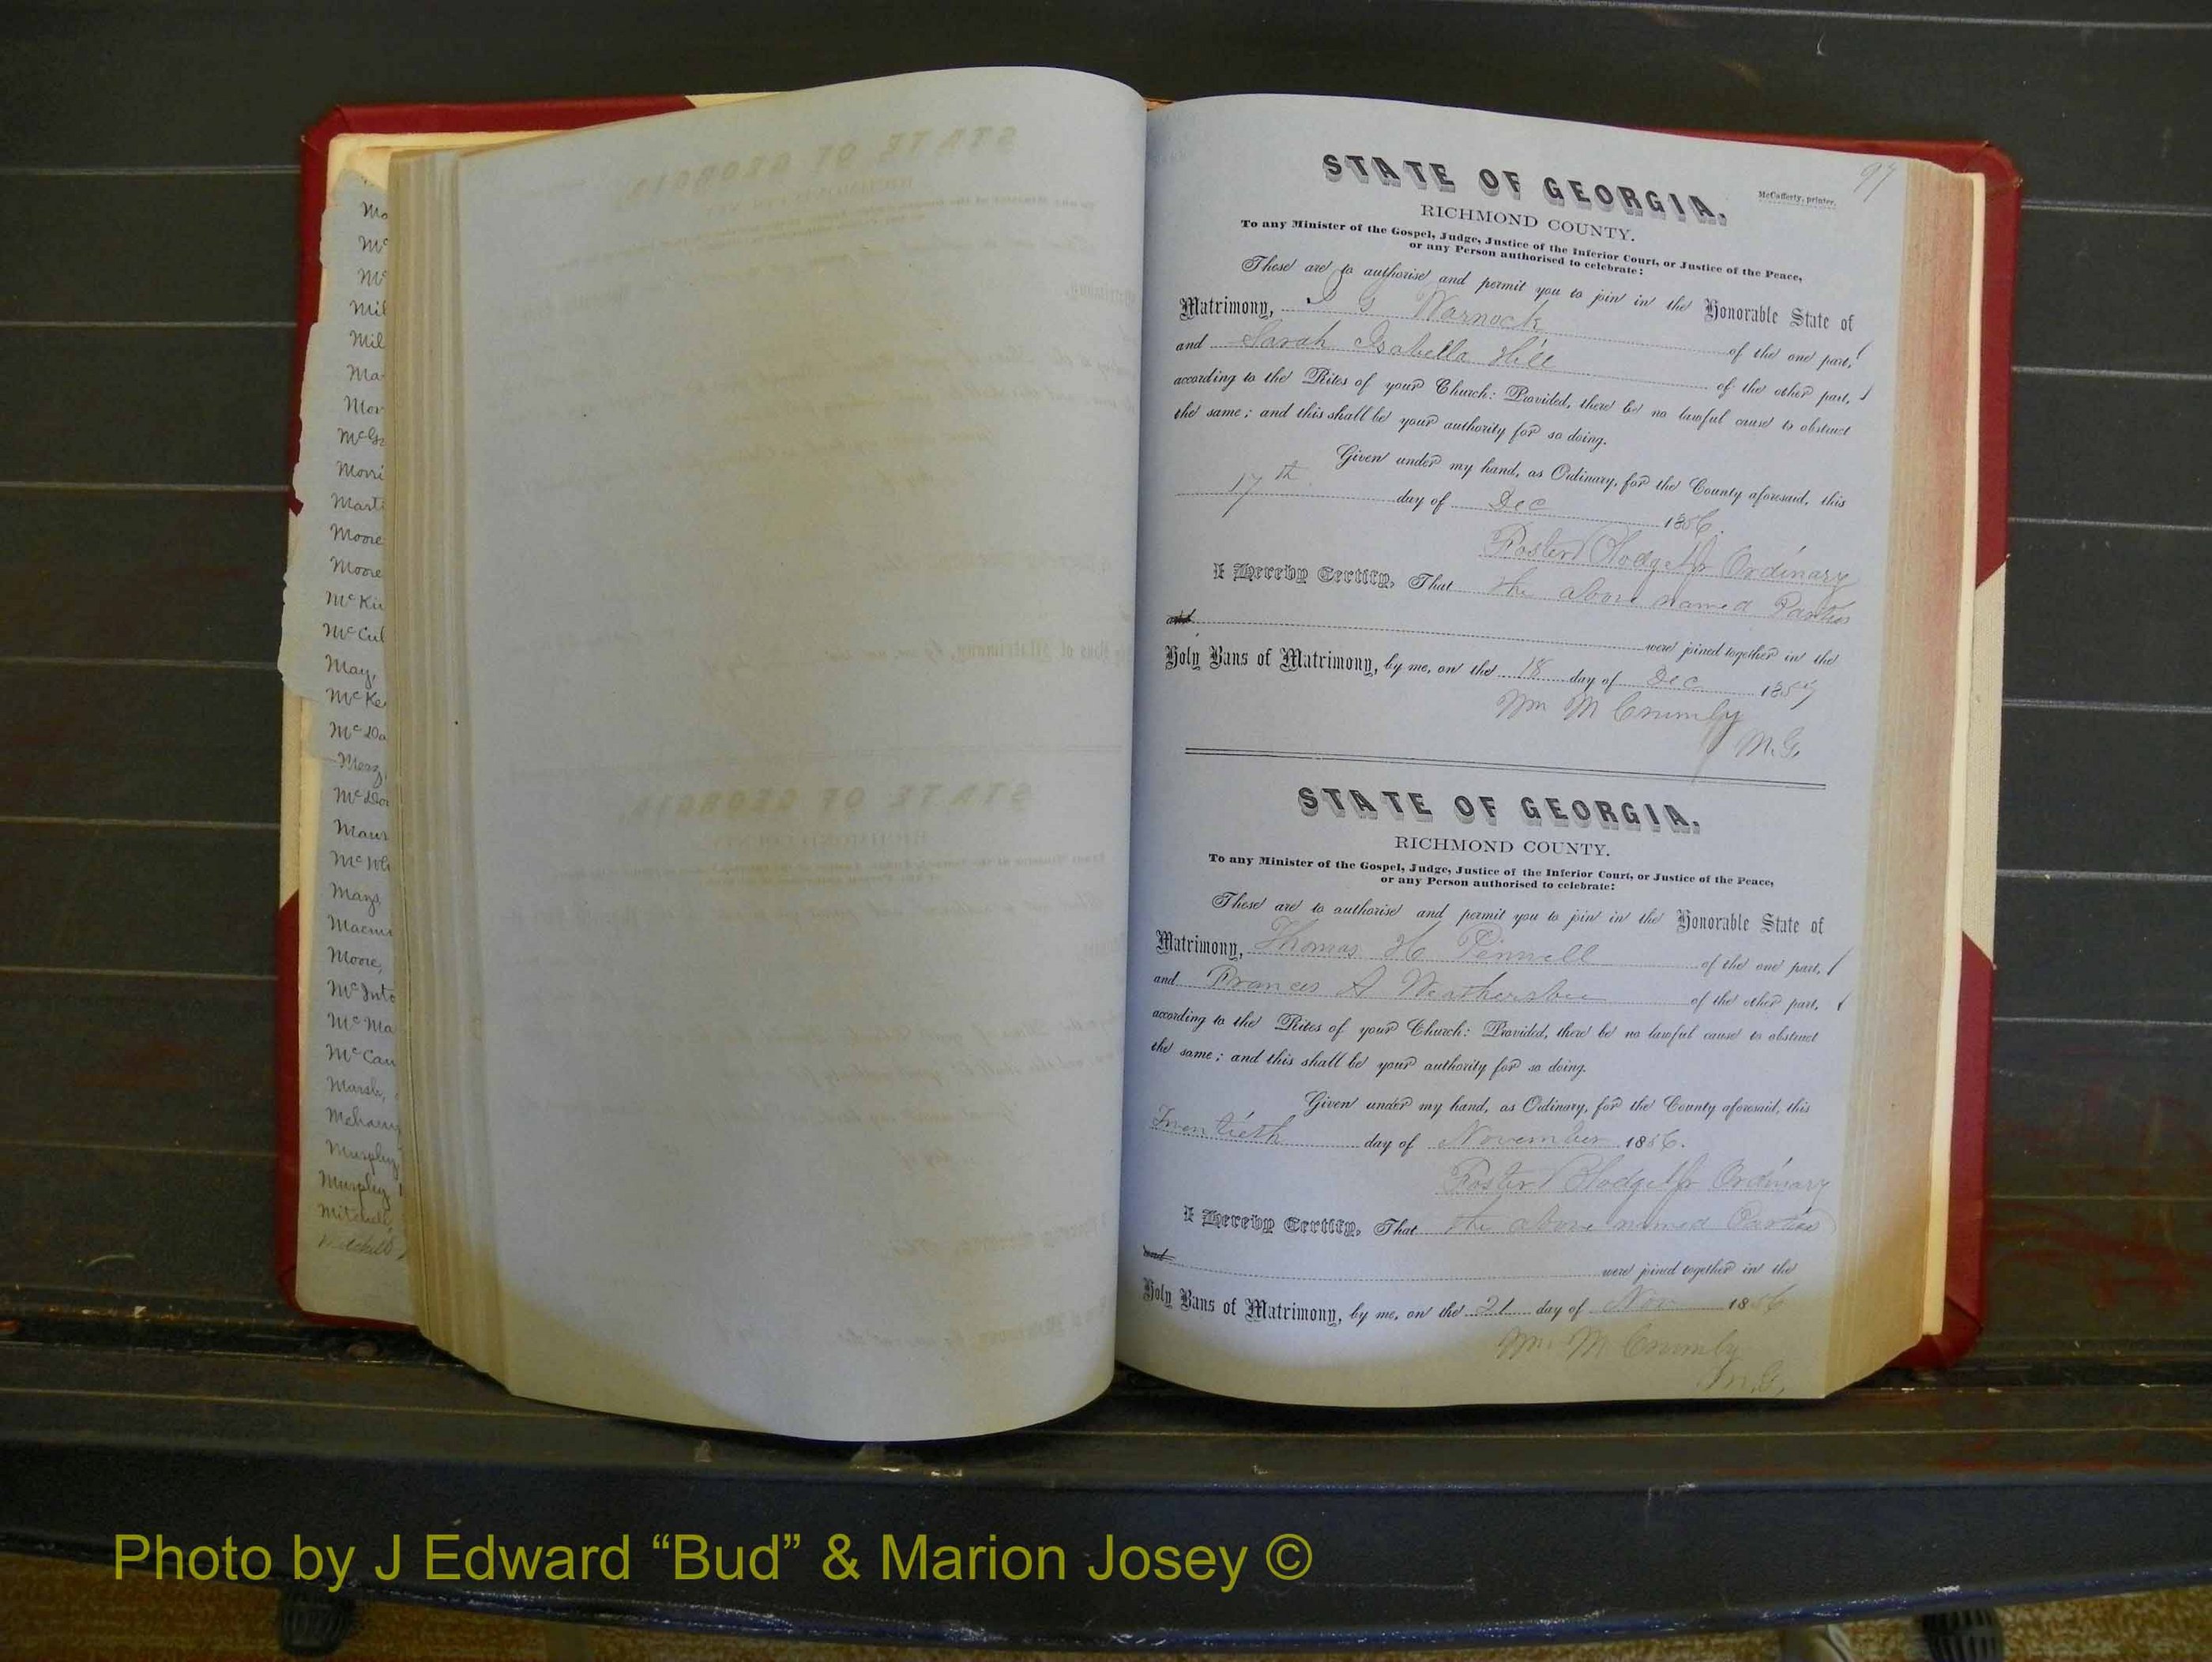 Mil
Mil
Mar
Mor
Morri
Marti
Moore
Moore
McKin
McCul
May,
McKe
McDa
McDon
Mays,
Moore,
McInto
McMa
McCan
Marsh,
Murphy
Murphy
Mitchell,
97
STATE OF GEORGIA.
McCafferty, printer.
RICHMOND COUNTY.
To any Minister of the Gospel, Judge, Justice of the Inferior Court, or Justice of the Peace,
or any Person authorised to celebrate:
These are to authorise and permit you to join in the Honorable State of
Matrimony, G Warnock of the one part,
and Sarah Isabella Hill of the other part,
according to the Rites of your Church: Provided, there be no lawful cause to obstruct
the same; and this shall be your authority for so doing.
Given under my hand, as Ordinary, for the County aforesaid, this
17th day of Dec 1856.
Foster Blodget Jr Ordinary
I Hereby Certify, That the above named Parties
and were joined together in the
Holy Bans of Matrimony, by me, on the 18 day of Dec 1857
Wm M Crumly
M.G.
STATE OF GEORGIA.
RICHMOND COUNTY.
To any Minister of the Gospel, Judge, Justice of the Inferior Court, or Justice of the Peace,
or any Person authorised to celebrate:
These are to authorise and permit you to join in the Honorable State of
Matrimony, Thomas H Pinnell of the one part,
and Frances A Weathersbee of the other part,
according to the Rites of your Church: Provided, there be no lawful cause to obstruct
the same; and this shall be your authority for so doing.
Given under my hand, as Ordinary, for the County aforesaid, this
Twentieth day of November 1856.
Foster Blodget Jr Ordinary
I Hereby Certify, That the above named Parties
and were joined together in the
Holy Bans of Matrimony, by me, on the 21 day of Nov 1856
Wm. M Crumly
M.G.
Photo by J Edward “Bud” & Marion Josey ©